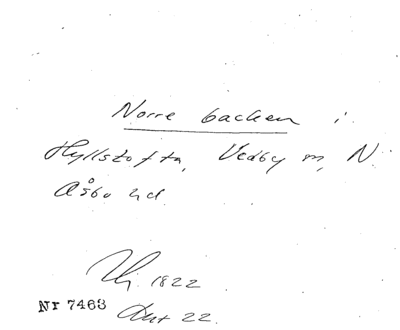 Norre backen i
Hyllstofta, Vedby m, N.
Åsbo hd.
1822
Nr 7463
22.